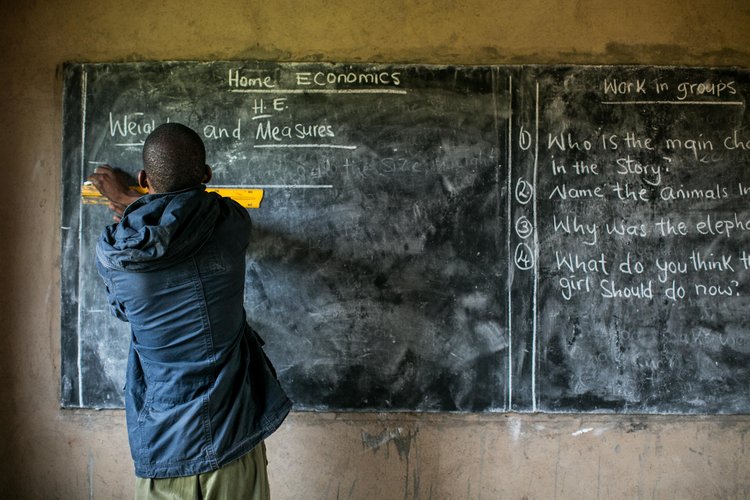 Home Economics
H.E.
and Measures
Work in groups
① Who Is the main
in the Story?
② Name the animals
③ Why was the
④ What do you think
girl Should do now?